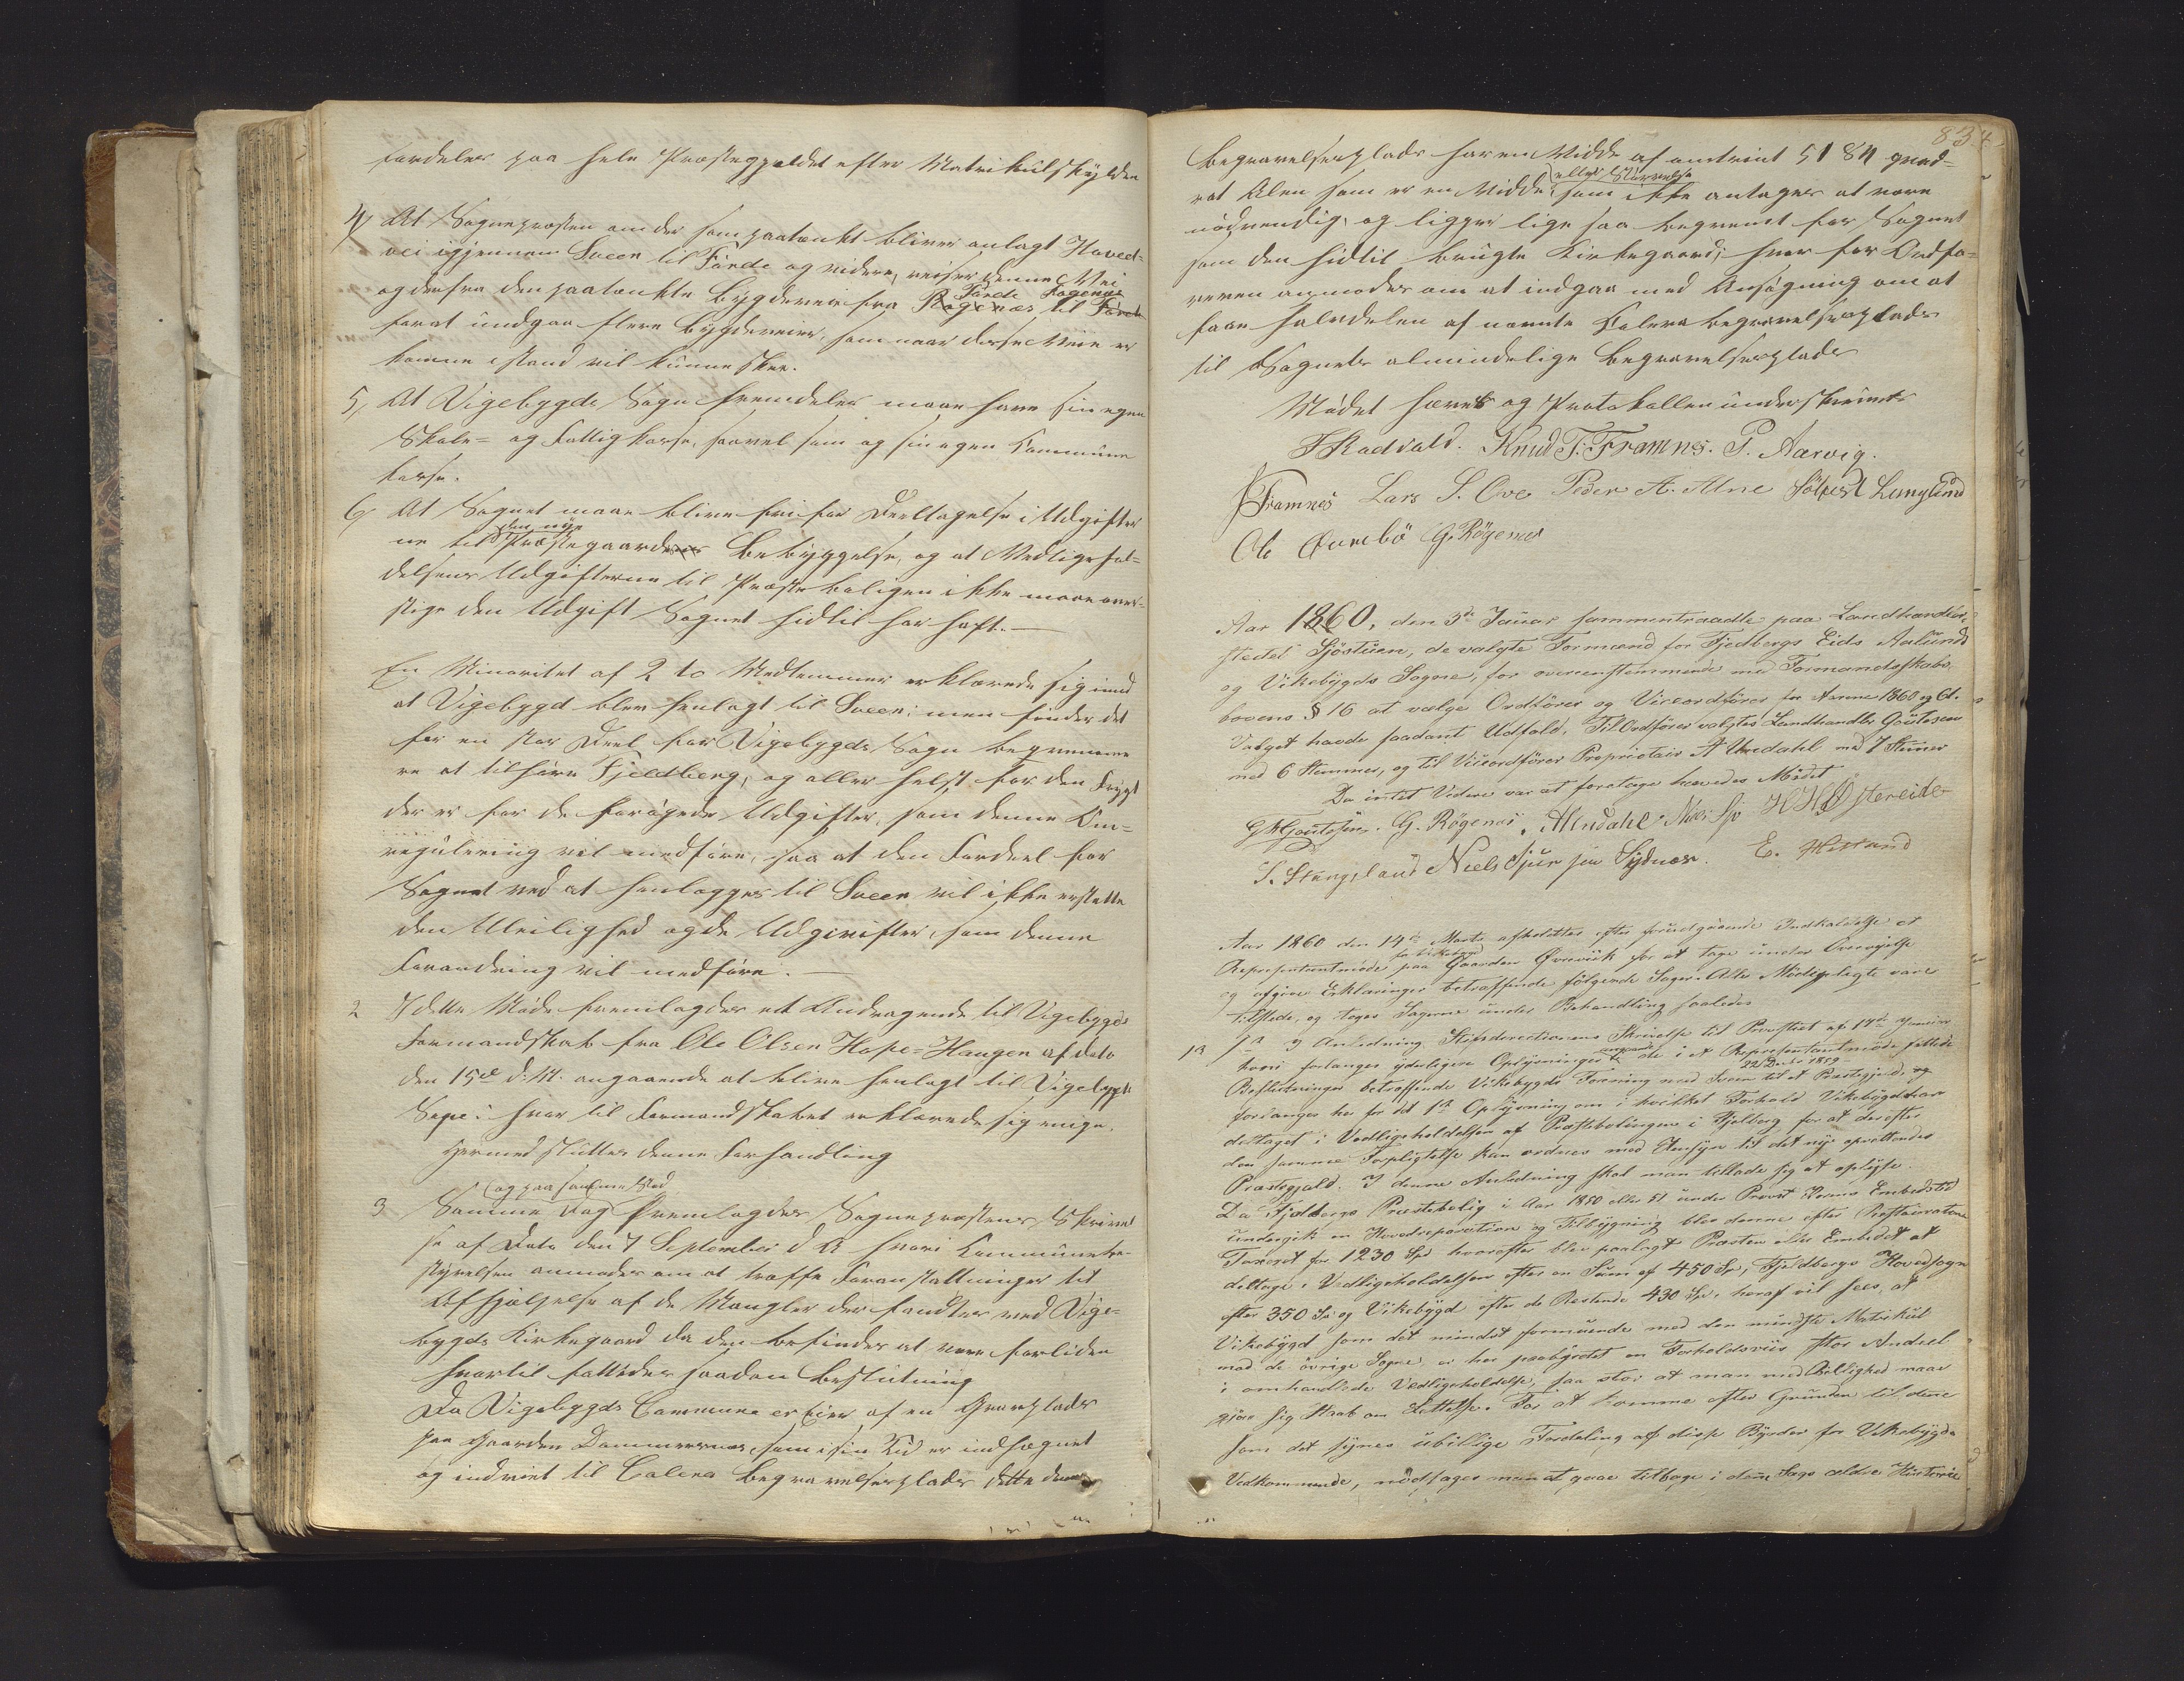 fordeles paa hele Præstegjeldet efter Matrikulskylden
4, At Sognepræsten om der som paatænkt bliver anlagt Hoved-
vei igjennem Sveen til Förde og videre, reiser denne Vei
og derfra den paatænkte Bygdevei fra Förde Rögenæs
forat undgaa flere Bygdeveier, som naar disse Veie er
komne istand vil kunne skee.
5, At Vigebygds Sogn fremdeles maae have sin egen
Skole- og Fattigkasse, saavel som og sin egen Kommune
kasse.
6, At Sognet maae blive fri for Deeltagelse i Udgifter
ne til den nye Præstegaards Bebyggelse, og at Vedligehol-
delsens Udgifterne til Præsteboligen ikke maae over-
stige den Udgift Sognet hidtil har haft. —
En Minoritet af 2 to Medlemmer erklærede sig imod
at Vigebygd blev henlagt til Sveen; men finder det
for en stor Deel for Vigebygds Sogn beqvemme
re at tilhøre Fjeldberg, og aller helst for den Frygt
der er for de forøgede Udgifter, som denne Om-
regulering vil medføre, saa at den Fordeel for
Sognet ved at henlægges til Sveen vil ikke erstatte
den Uleilighed og de Udgivifter, som denne
Forandring vil medføre. —
2 I dette Møde fremlagdes et Andragende til Vigebygds
Formandskab fra Ole Olsen Hope-Haugen af dato
den 15de d: M. angaaende at blive henlagt til Vigebygds
Sogn i hvor til Formandskabet erklærede sig enige.
Hermed sluttes denne Forhandling
3 Samme Dag (og paa samme Sted fremlagdes Sognepræstens Skrivel
se af Dato den 7 September d A hvori Kommunebe-
styrelsen anmodes om at træffe Foranstaltninger til
Afhjælpelse af de Mangler der fandtes ved Vige-
bygds Kirkegaard da den befindes at være for liden
hvortil fattedes saadan Beslutning
Da Vigebygds Commune er Eier af en Gravplads
paa Gaarden Dommersnes, som i sin Tid er indhegnet
og indviet til Colera Begravelsesplads dette denne
Begravelsesplads har en Vidde af omtrint 5184 qvad-
rat Alen som er en Vidde (eller Størrelse som ikke antages at være
nødvendig, og ligger lige saa beqvemt for Sognet
som den hidtil brugte Kirkegaard; hvor for Ordfø-
reren anmodes om at indgaa med Ansøgning om at
faae halvdelen af nævnte Colera begravelsesplads
til Sognets almindelige Begravelsesplads
Mødet hævet og Protokollen underskrevet
Knud T. Framnes. P. Aarvig.
Framnes Lars S. Ove Peder A. Alne
Ole G. Rögenes
Aar 1860, den 3de Januar sammentraadte paa Landhandler
stedet Sjöstuen, de valgte Formænd for Fjedbergs Eids Aalunds
og Vikebygds Sogne, for overeenstemmende med Formandskabs-
lovens § 16 at vælge Ordförer og Viceordförer for Aarene 1860 og 61.
Valget havde saadant Udfald. Til Ordförer valgtes Landhandler Goutesen
med 6 Stemmer, og til Viceordförer Proprietair A Undahl med 7 Stemer
Da intet Videre var at foretage hævedes Mödet
G. Rögenes. AUndahl H H Östereide
S. Stangeland Niels Sjursen Sydnæs. E. Hetland
Aar 1860 den 14de Marts afholdtes efter forudgaaende Indkaldelse et
Representantmöde for Vikebygd paa Gaarden Överviik for at tage under Overveielse
og afgive Erklæringer betræffende følgende Sager. Alle Mödepligtige vare
tilstede, og toges Sagerne under Behandling saaledes
1o I Anledning Stiftsdirectionens Skrivelse til Provstiet af 17de Januar
hvori forlanges yderligere Oplysninger angaaende de i et Representantmöde 22 Decbr 1859 fattede
Beslutninger betræffende Vikebygds Forening med Sveen til et Præstegjeld, og
forlanges her for det 1o Oplysning om i hvilket Forhold Vikebygd har
deltaget i Vedligeholdelsen af Præsteboligen i Fjelberg for at derefter
den samme Forpligtelse kan ordnes med Hensyn til det nye oprettendes
Præstegjeld. I denne Anledning skal man tillade sig at oplyse.
Da Fjelbergs Præstebolig i Aar 1850 eller 51 under Provst Embedstid
undergik en Hovedreparation og Tilbygning blev denne efter
Taxeret for 1230 Spd hvorefter blev paalagt Præsten eller Embedet at
deltage i Vedligeholdelsen efter en Sum af 450 Sp, Fjeldbergs Hovedsogn
efter 350 Sp og Vikebygd efter de Restende 430 Sp, heraf vil sees, at
Vikebygd som det mindst formuende med den mindste Matrikul
mod de övrige Sogne, er her paabyrdet en Forholdsviis stor Andeel
i omhandlede Vedligeholdelse, saa stor at man med Billighed maae
gjöre sig Haab om Lettelse. For at komme efter Grunden til dene
som det synes ubillige Fordeling af disse Byrder for Vikebygds
Vedkommende, nödsages man at gaae tilbage i denne Sags ældre Historie